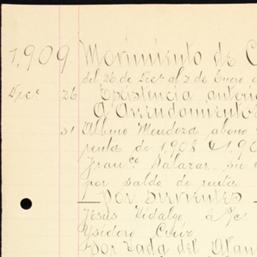 1,909 Movimiento de C
del 26 de Dec. al 2 de Enero d
Dec. 26 Existencia anteri
A Arrendamiento
31 Albino Mendoza abono
renta de 1908 & 190
Franco. Salazar, su
por saldo de renta
Por Sirvientes
Jesus Hidalgo a/c
Ysidoro Cruz
Por Zada del Gana